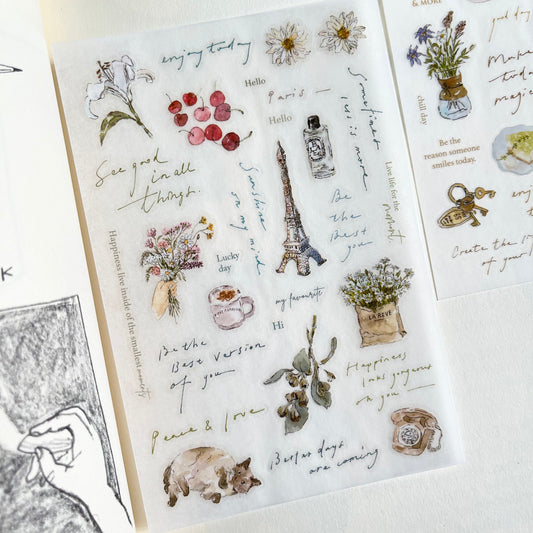 enjoy today
Hello
Paris —
Hello
Sometimes
less is more
See good
in all
things.
Sunshine
on my mind
Be
the
Best
you
Live life for the
moment.
Happiness live inside of the smallest moments
Lucky
day
my favourite
Hi
LA REVE
Be the
Best version
of you
Happiness
looks gorgeous
on you —
Peace & love
Better days
are coming
& MORE
good day
Make
today
magic
chill day
Be the
reason someone
smiles today.
enjoy
Create the
of your
K